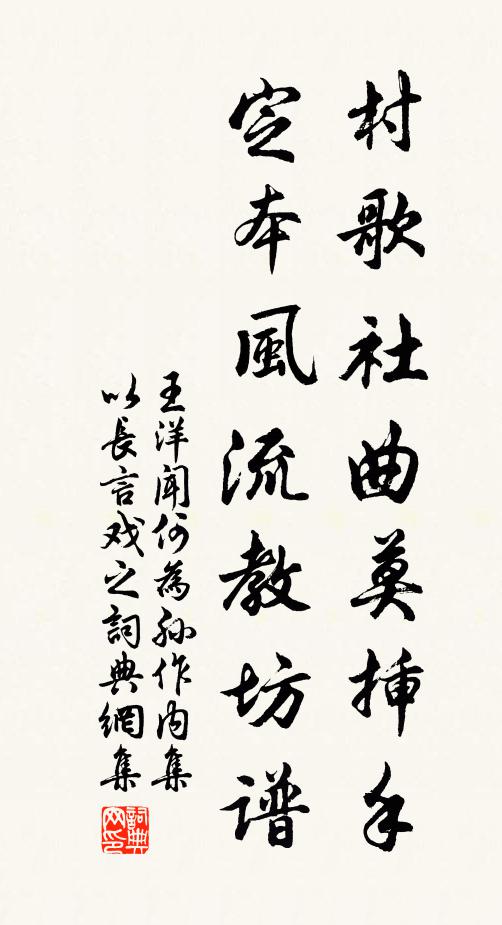 村歌社曲莫插手
定本風流教坊譜
王洋聞何為孙作内集
以長言戏之詞典網集
詞典网印